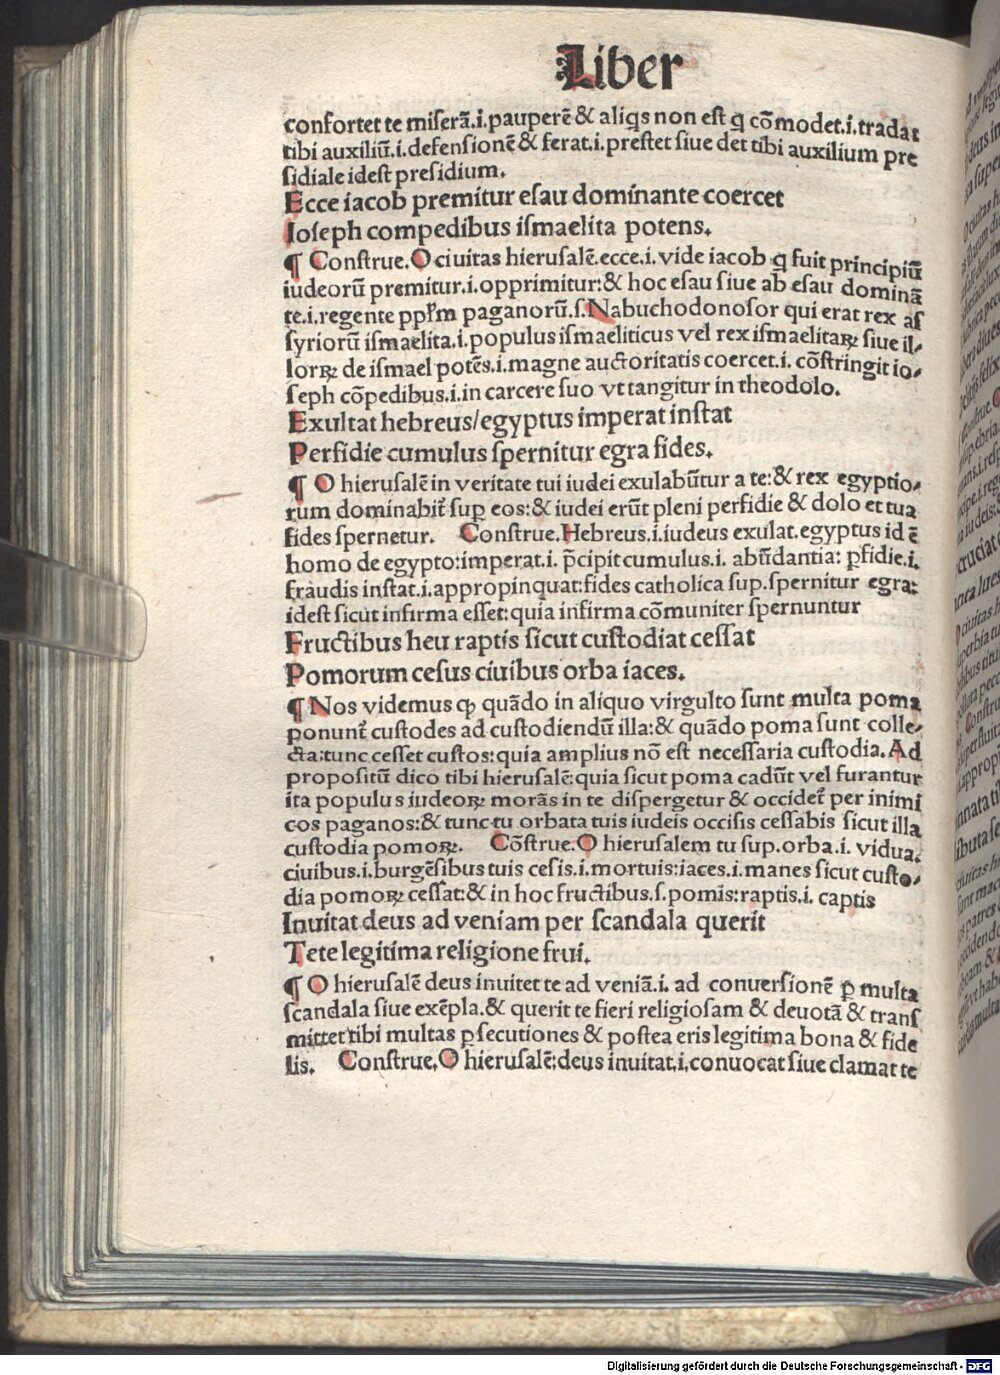 Liber
confortet te miserā.i.pauperē & aliꝗs non est ꝗ cōmodet.i.tradat
tibi auxiliū.i.defensionē & ferat.i.prestet siue det tibi auxilium pre
sidiale idest presidium.
Ecce iacob premitur esau dominante coercet
Ioseph compedibus ismaelita potens.
¶ Construe.O ciuitas hierusalē.ecce.i.vide iacob ꝗ fuit principiū
iudeorū premitur.i.opprimitur:& hoc esau siue ab esau dominā
te.i.regente ppl̄m paganorū.s.Nabuchodonosor qui erat rex as
syriorū ismaelita.i.populus ismaeliticus vel rex ismaelitaꝝ siue il⸗
lorꝝ de ismael potēs.i.magne auctoritatis coercet.i. cōstringit io⸗
seph cōpedibus.i.in carcere suo vt tangitur in theodolo.
Exultat hebreus/egyptus imperat instat
Perfidie cumulus spernitur egra fides.
¶ O hierusalē in veritate tui iudei exulabūtur a te:& rex egyptio⸗
rum dominabit̄ suꝑ eos:& iudei erūt pleni perfidie & dolo et tua
fides spernetur. Construe.Hebreus.i.iudeus exulat.egyptus id ē
homo de egypto:imperat.i. p̄cipit cumulus.i. abūdantia: ꝑfidie.i.
fraudis instat.i.appropinquat:fides catholica sup.spernitur egra:
idest sicut infirma esset:quia infirma cōmuniter spernuntur
Fructibus heu raptis sicut custodiat cessat
Pomorum cesus ciuibus orba iaces.
¶ Nos videmus ꝙ quādo in aliquo virgulto sunt multa poma
ponunt̄ custodes ad custodiendū illa:& quādo poma sunt colle⸗
cta:tunc cesset custos:quia amplius nō est necessaria custodia.Ad
propositū dico tibi hierusalē:quia sicut poma cadūt vel furantur
ita populus iudeoꝝ morās in te dispergetur & occidet̄ per inimi
cos paganos:& tunc tu orbata tuis iudeis occisis cessabis sicut illa
custodia pomoꝝ. Cōstrue.O hierusalem tu sup.orba.i. vidua.
ciuibus.i.burgēsibus tuis cesis.i.mortuis:iaces.i.manes sicut custo⸗
dia pomoꝝ cessat:& in hoc fructibus.s.pomis:raptis.i. captis
Inuitat deus ad veniam per scandala querit
Tete legitima religione frui.
¶ O hierusalē deus inuitet te ad veniā.i. ad conuersionē ꝑ multa
scandala siue exēpla.& querit te fieri religiosam & deuotā & trans
mittet tibi multas ꝑsecutiones & postea eris legitima bona & fide
lis. Construe.O hierusalē:deus inuitat.i.conuocat siue clamat te
Digitalisierung gefördert durch die Deutsche Forschungsgemeinschaft - DFG